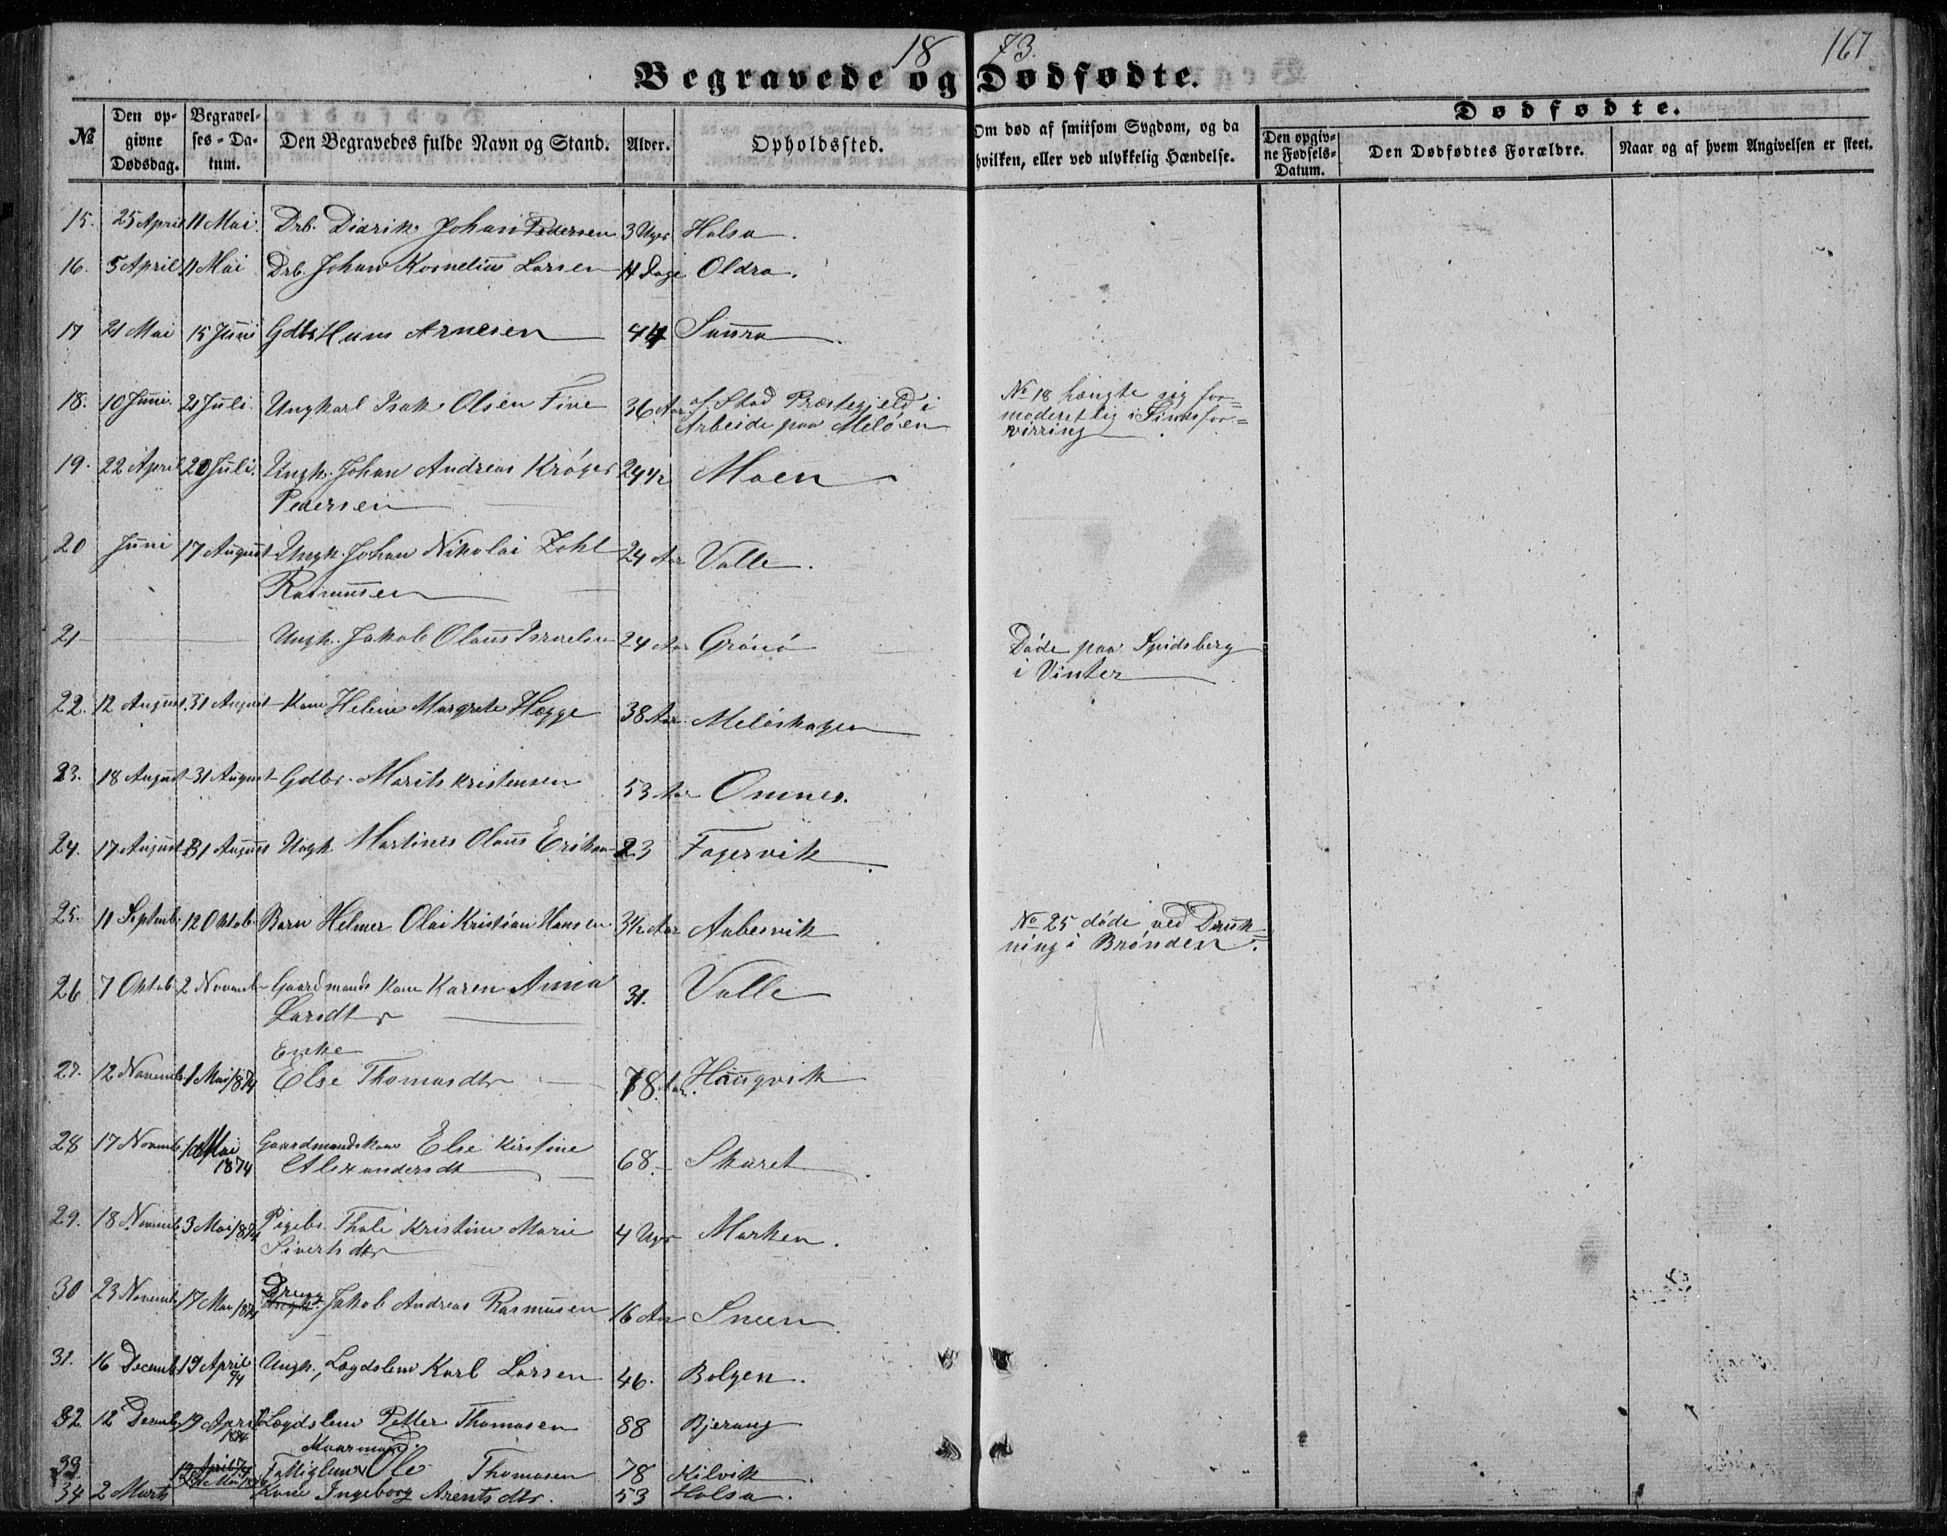 1873.
167
Begravede og Dødfødte.
№
Den opgivne Dødsdag.
Begravelses-Datum.
Den Begravedes fulde Navn og Stand.
Alder.
Opholdssted.
Om død af smitsom Sygdom, og da hvilken, eller ved ulykkelig Hændelse.
Dødfødte.
Den opgivne Fødsels-Datum.
Den Dødfødtes Forældre.
Naar og af hvem Angivelsen er skeet.
15. 25 April 11 Mai. Drb. Didrik Johan Pedersen 3 Uger Halsa.
16. 5 April 11 Mai Drb. Johan Kornelius Larsen 11 Dage Oldra.
17 21 Mai 15 Juni Gdbr Hans Arnesen 44 Saura
18. 10 Juni. 21 Juli Ungkarl Isak Olsen Five 36 Aar af Stad Præstegjeld i
Arbeide paa Meløen
№ 18 hængte sig for=
modentlig i Sindsfor=
virring
19. 22 April 20 Juli. Ungk. Johan Andreas Krøger
Pedersen 29 1/2 Moen
20 Juni 17 August Ungk. Johan Nikolai Zahl
Rasmussen 24 Aar Valle.
21 Ungk. Jakob Olaus Israelsen 24 Aar Grønø
Døde paa Spidsberg
i Vinter
22. 12 August. 31 August Kone Helene Margrete Hegge 38 Aar Meløskagen
23. 18 August 31 August Gdbr. Morits Kristensen 53 Aar Omnes.
24. 17 August 31 August Ungk Martines Olaus Eriksen 23 Fagervik
25. 11 Septemb. 12 Oktob. Barn Helmer Olai Kristian Hansen 3 1/2 Aar Aabesvik
№ 25 døde ved Druk=
ning i Brønden.
26 7 Oktob 2 Novemb Gaardmands Kone Karen Anna
Larsdtr 31. Valle
Enke
27. 12 Novemb. 1 Mai 1874 Else Thomasdtr 78 Aar. Haugvik
28 17 Novemb Mai
1874 Gaardmandskone Else Kirstine
Alexandersdt 68. Skaret
29. 18 Novemb. 3 Mai 1874 Pigebr. Thale Kristine Marie
Sivertsdtr 4 Uger Marken.
30 23 Novemb. 17 Mai 1874 Dreng Jakob Andreas Rasmusen 16 Aar Sneen
31. 16 Decemb 19 April
74 Ungk, Lægdslem Karl Larsen 46. Bolgen.
32. 12 Decemb. 19 April
1874 Lægdslem Petter Thomasen 88 Bjerang
33. Fattiglem Ole Thomasen 78 Kilvik
34 2 Marts Kone Ingeborg Arentsdtr. 53 Halsa.